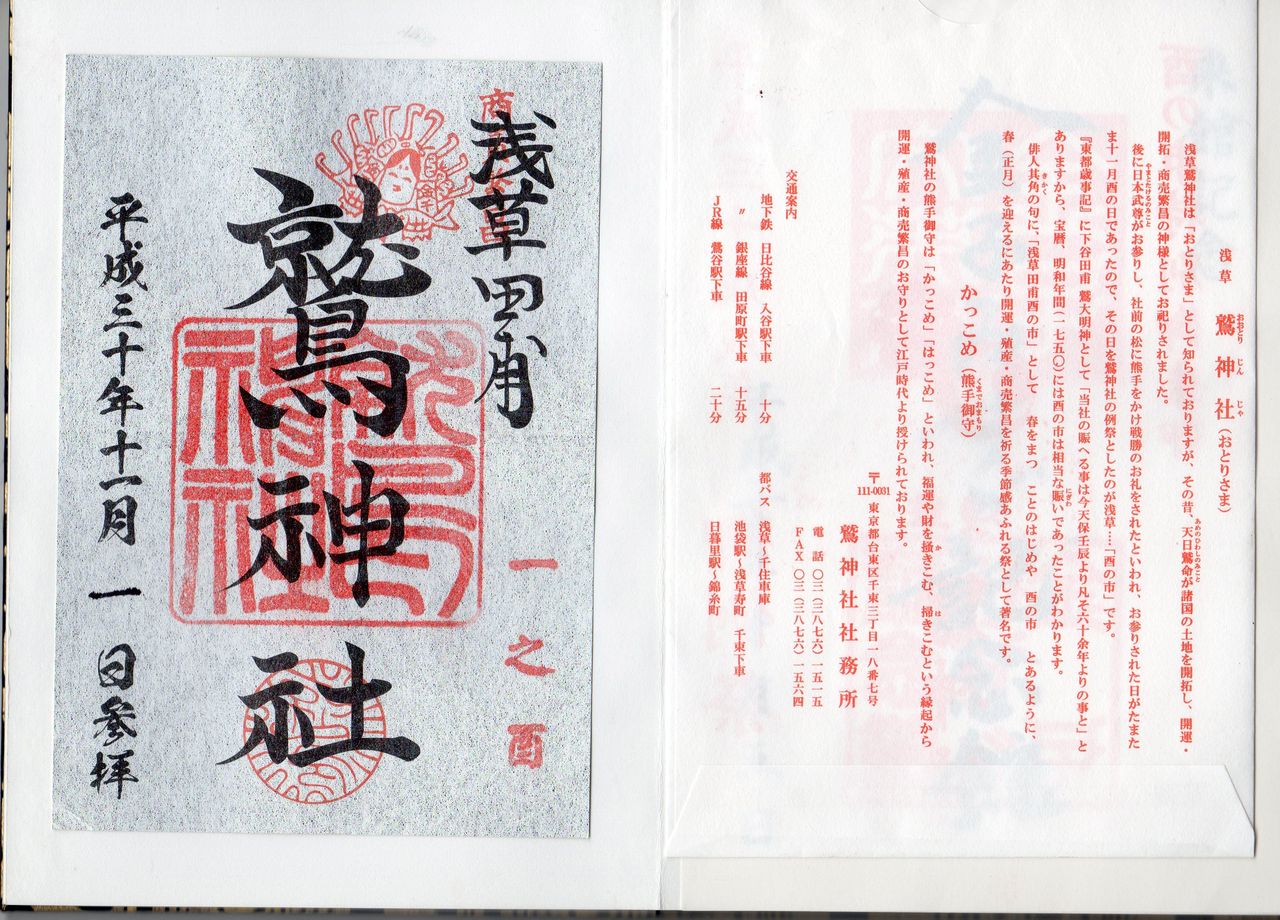 浅草 鷲神社(おとりさま)
おおとり じん じゃ
浅草鷲神社は「おとりさま」として知られておりますが、その昔、天日鷲命が諸国の土地を開拓し、開運・
あめのひわしのみこと
開拓・商売繁昌の神様としてお祀りされました。
後に日本武尊がお参りし、社前の松に熊手をかけ戦勝のお礼をされたといわれ、お参りされた日がたまた
やまとたけるのみこと
ま十一月酉の日であったので、その日を鷲神社の例祭としたのが浅草…「酉の市」です。
『東都歳事記』に下谷田甫 鷲大明神として「当社の賑へる事は今天保壬辰より凡そ六十余年よりの事と」と
ありますから、宝暦、明和年間(一七五〇)には酉の市は相当な賑いであったことがわかります。
にぎわ
俳人其角の句に、「浅草田甫酉の市」として 春をまつ ことのはじめや 酉の市 とあるように、
きかく
春(正月)を迎えるにあたり開運・殖産・商売繁昌を祈る季節感あふれる祭として著名です。
かっこめ(熊手御守)
くまでおまもり
鷲神社の熊手御守は「かっこめ」「はっこめ」といわれ、福運や財を掻きこむ、掃きこむという縁起から
か は
開運・殖産・商売繁昌のお守りとして江戸時代より授けられております。
〒111-0031 東京都台東区千束三丁目一八番七号
鷲神社社務所
電話 〇三(三八七六)一五一五
FAX 〇三(三八七六)一五六四
交通案内
地下鉄 日比谷線 入谷駅下車 十分
〃 銀座線 田原町駅下車 十五分
JR線 鶯谷駅下車 二十分
都バス 浅草〜千住車庫
池袋駅〜浅草寿町 千束下車
日暮里駅〜錦糸町
浅草田甫
一之酉
鷲神社
鷲神社
平成三十年十一月一日参拝